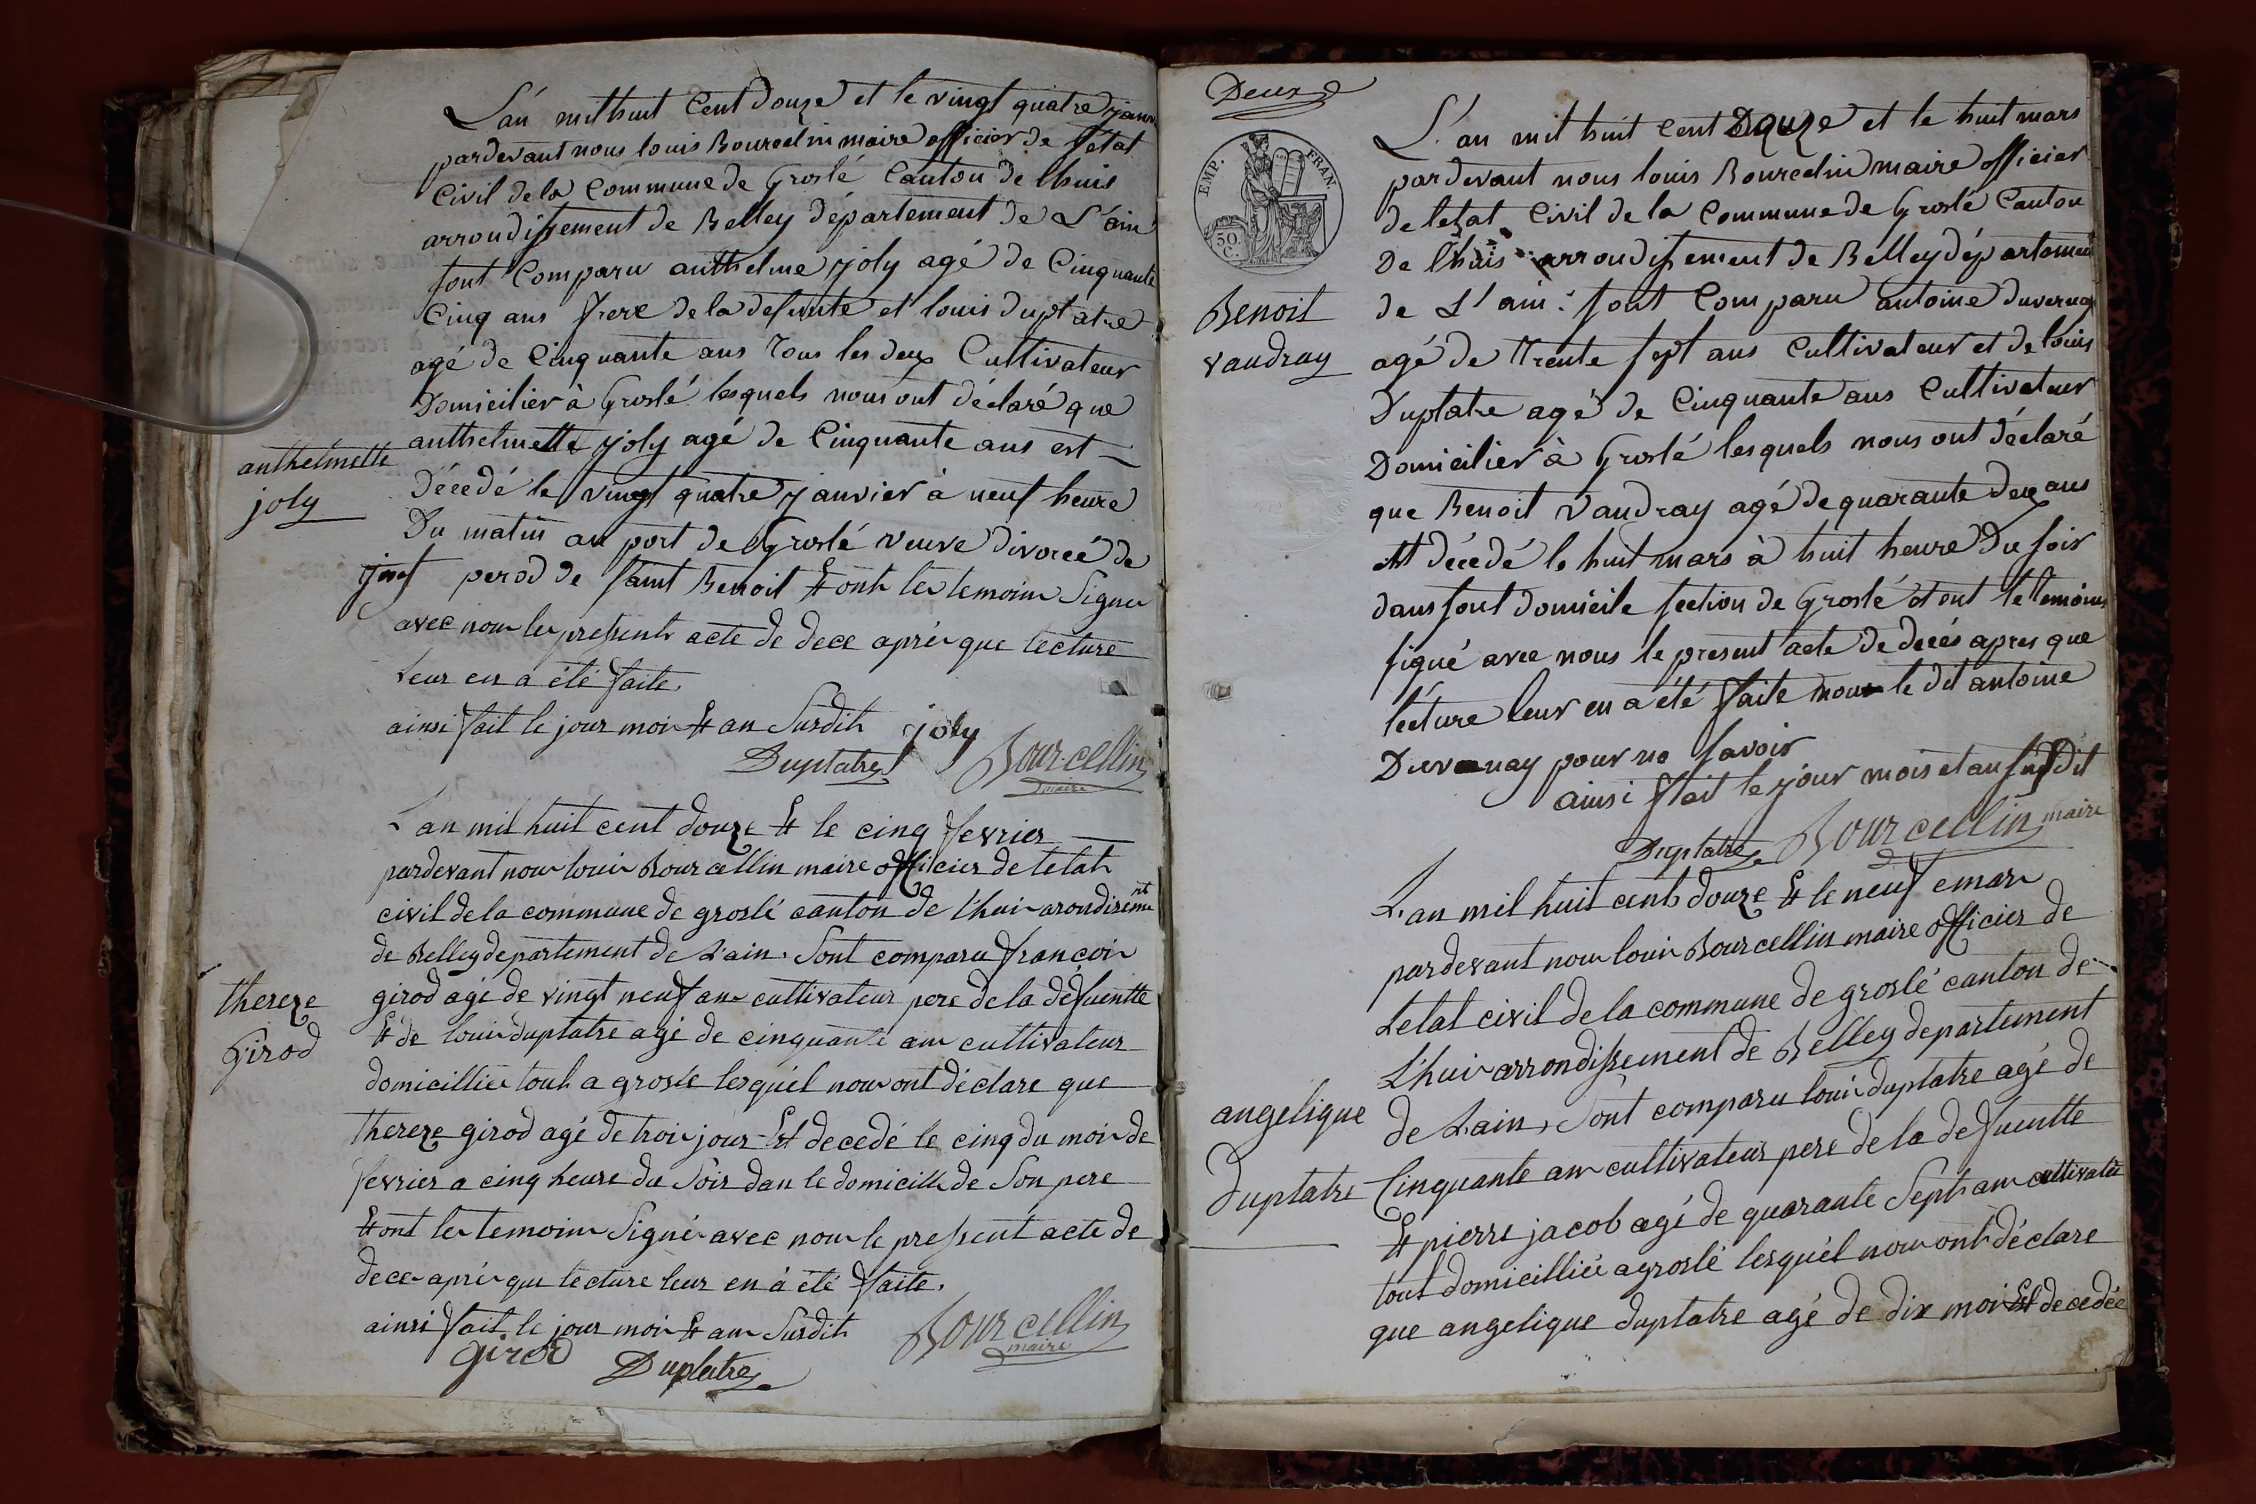 L'an mil huit Cent Douze et le vingt quatre janv
pardevant nous louis Bourcelin maire officier de l'état
Civil de la Commune de Groslé Canton de lhuis
arrondissement de Belley département de L'ain
sont Comparu anthelme joly agé de Cinquante
Cinq ans frere de la defunte et louis duplatre
agé de Cinquante ans Tous les deux Cultivateur
Domicilier à Groslé lesquels nous ont déclaré que
anthelmette joly agé de Cinquante ans est
Décédé le vingt quatre janvier à neuf heure
Du matin au port de Groslé veuve divorcé de
josef perod de saint Benoit Et ont les temoins Signer
avec nous les present acte de dece après que lecture
leur en a été faite.
ainsi fait le jour mois Et an Surdit joly
Duplatre Bourcellin
maire
anthelmette
joly
L'an mil huit cent douze Et le cinq fevrier
pardevant nous louis Bourcellin maire officier de letat
civil de la commune de groslé canton de l'huis arondisemnt
de Belley departement de L'ain. Sont comparu françois
girod agé de vingt neuf ans cultivateur pere de la défuentte
Et de louis duplatre agé de cinquante ans cultivateur
domicillié touts a groslé lesquél nous ont déclare que
thereze girod agé de trois jours Est decedé le cinq du mois de
fevrier a cinq heure du Soir dans le domicille de Son pere
Et ont les temoins Signé avec nous le present acte de
deces après que lecture leur en à été faite.
ainsi fait le jour mois Et ans Susdit
girod Duplatre Bourcellin
maire
thereze
Girod
Deux
EMP. FRAN.
50
C.
L'an mil huit Cent Douze et le huit mars
pardevant nous louis Bourcelin maire officier
de letat Civil de la Commune de Groslé Canton
De lhuis arrondissement de Belley département
de L'ain : sont Comparu antoine duvernay
agé de Trente sept ans Cultivateur et de louis
Duplatre agé de Cinquante ans Cultivateur
Domicilier à Groslé lesquels nous ont déclaré
que Benoit Vaudray agé de quarante deux ans
est décedé le huit mars à huit heure Du soir
dans sont domicile section de Groslé et ont le temoins
signé avec nous le present acte de decés apres que
lecture leur en a été faite nous le dit antoine
Duvernay pour no savoir
ainsi fait le jour mois et an susdit
Duplatre Bourcellin maire
Benoit
vaudray
L'an mil huit cents douze Et le neuf emars
pardevant nous louis Bourcellin maire officier de
Letat civil de la commune de groslé canton de
L'huis arrondissement de Belley departement
de L'ain, Sont comparu louis duplatre agé de
Cinquante ans cultivateur pere de la defuentte
Et pierre jacob agé de quarante Sept ans cultivateur
tout domicillié a groslé lesquél nous ont déclare
que angelique duplatre agé de dix mois Est decedée
angelique
Duplatre